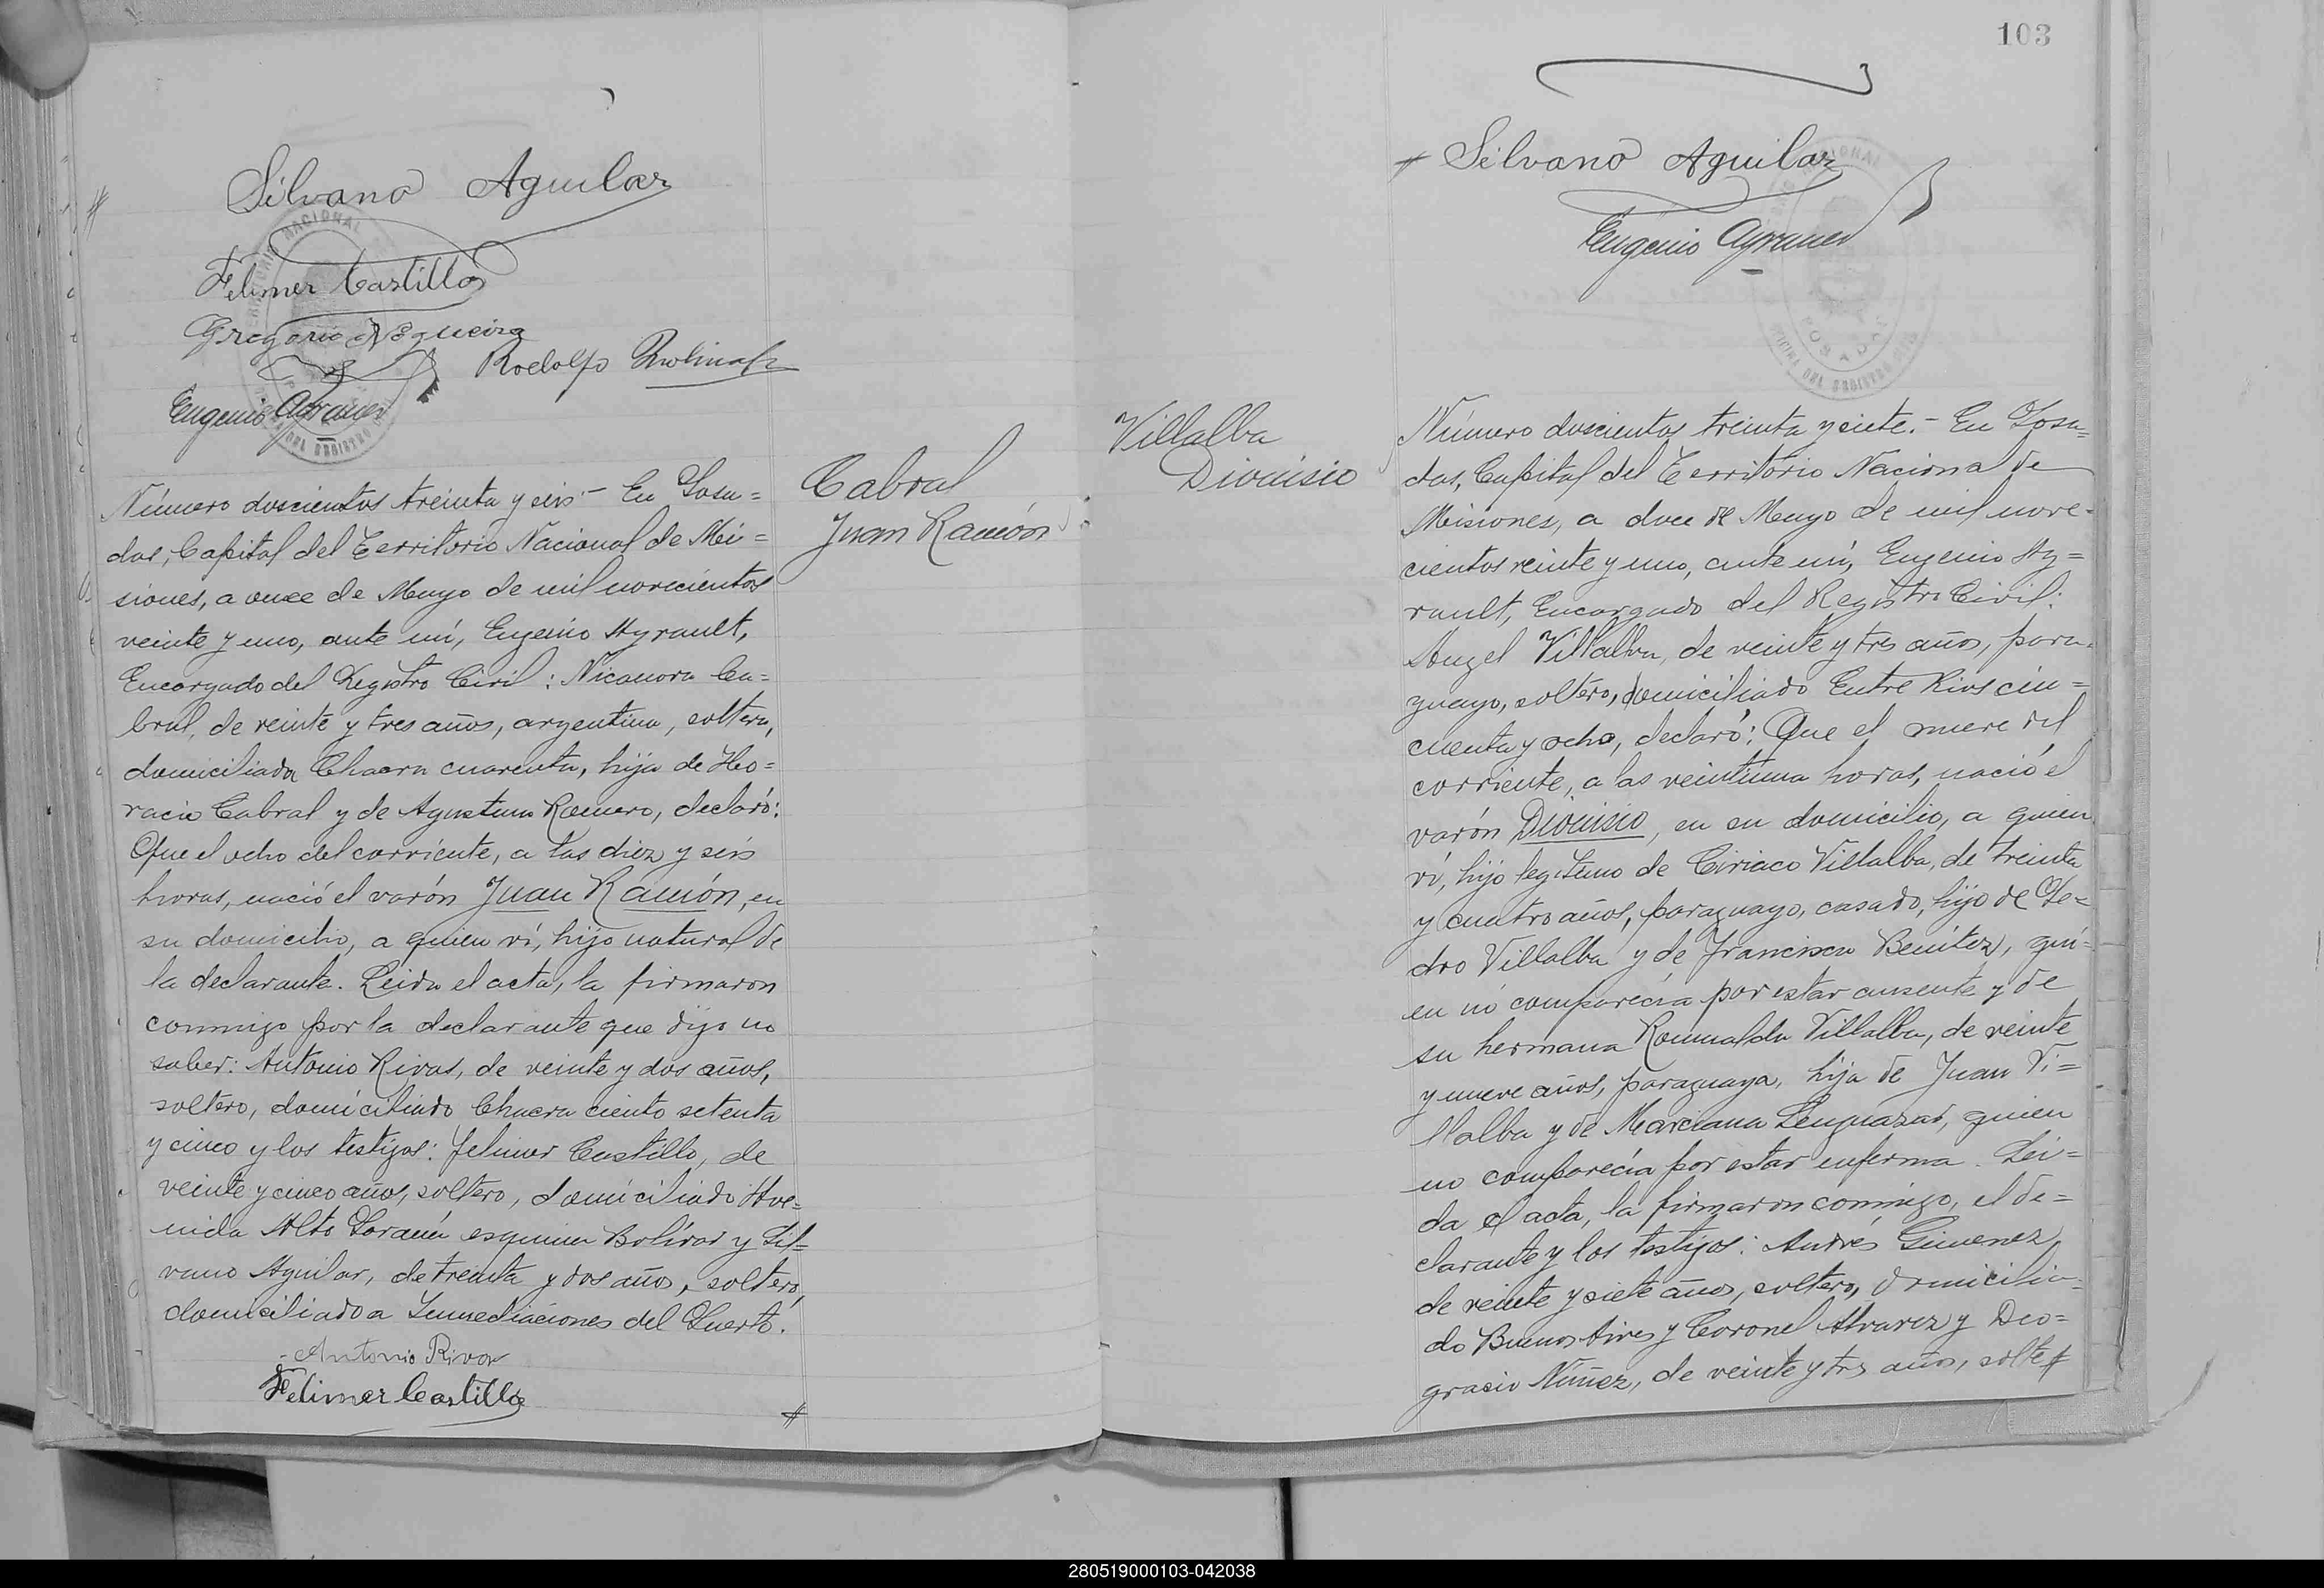 Silvano Aguilar
Felimer Castillo
Gregorio Nogueira
Rodolfo
Eugenio Ayrault
Número doscientos treinta y seis.- En Posa=
das, Capital del Territorio Nacional de Mi=
siones, a once de Mayo de mil novecientos
veinte y uno, ante mí, Eugenio Ayrault,
Encargado del Registro Civil: Nicanora Ca=
bral, de veinte y tres años, argentina, soltera,
domiciliada Chacra cuarenta, hija de Ho=
racio Cabral y de Agustina Romero, declaró:
Que el ocho del corriente, a las diez y seis
horas, nació el varón Juan Ramón, en
su domicilio, a quien ví, hijo natural de
la declarante. Leida el acta, la firmaron
conmigo por la declarante que dijo no
saber: Antonio Rivas, de veinte y dos años,
soltero, domiciliado Chacra ciento setenta
y cinco y los testigos: Felimer Castillo, de
veinte y cinco años, soltero, domiciliado Ave=
nida Alto Paraná esquina Bolívar y Sil=
vano Aguilar, de treinta y dos años, soltero,
domiciliado a Inmediaciones del Puerto.
Antonio Rivas
Felimer Castillo
#
Cabral
Juan Ramón
103
# Silvano Aguilar
Eugenio Ayrault
Villalba
Dionisio
Número doscientos treinta y siete.- En Posa=
das, Capital del Territorio Nacional de
Misiones, a doce de Mayo de mil nove=
cientos veinte y uno, ante mí, Eugenio Ay=
rault, Encargado del Registro Civil:
Angel Villalba, de veinte y tres años, para=
guayo, soltero, domiciliado Entre Rios cin=
cuenta y ocho, declaró: Que el nueve del
corriente, a las veintiuna horas, nació el
varón Dionisio, en su domicilio, a quien
ví, hijo legitimo de Ciriaco Villalba, de treinta
y cuatro años, paraguayo, casado, hijo de Pe=
dro Villalba y de Francisca Benitez, qui=
en nó comparecía por estar ausente y de
su hermana Romualda Villalba, de veinte
y nueve años, paraguaya, hija de Juan Vi=
llalba y de Marciana Lenguazar, quien
no comparecía por estar enferma. Lei=
da el acta, la firmaron conmigo, el de=
clarante y los testigos: Andrés Gimenez,
de veinte y siete años, soltero, domicilia=
do Buenos Aires y Coronel Alvarez y Deo=
gracio Núñez, de veinte y tres años, solte#
280519000103-042038